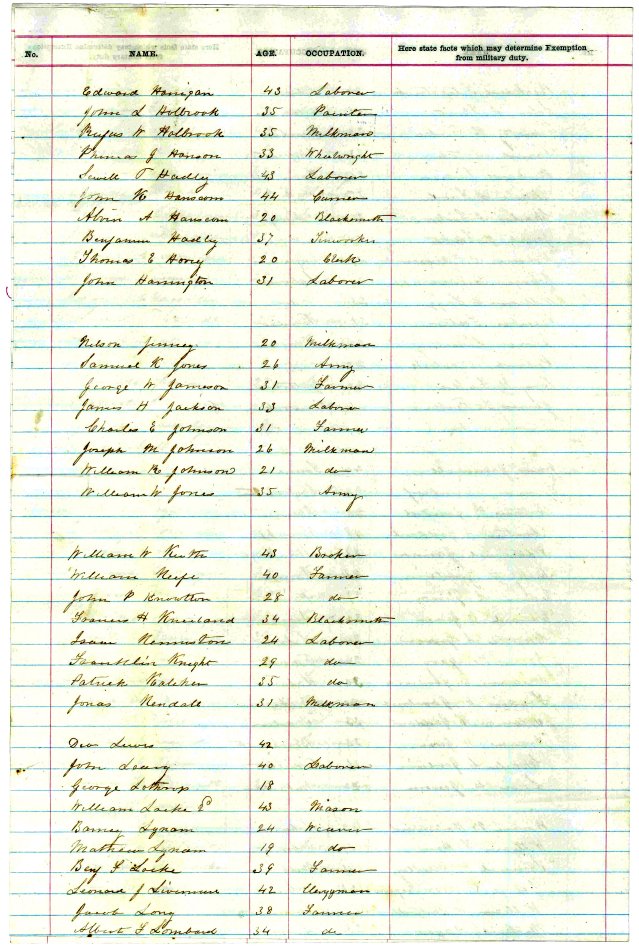 No. NAME. AGE. OCCUPATION. Here state facts which may determine Exemption
from military duty.
Edward Hanigan 43 Laborer
John L Holbrook 35 Painter
Rufus W Holbrook 35 Milkman
Phineas J Hanson 33 Wheelwright
Sewell T Hadley 43 Laborer
John K Hanscom 44 Currier
Alvin A Hanscom 20 Blacksmith
Benjamin Hadley 37 Tinworker
Thomas E Hovey 20 Clerk
John Harrington 31 Laborer
Nelson 20 Milkman
Samuel K Jones 26 Army
George W Jameson 31 Farmer
James H Jackson 33 Laborer
Charles E Johnson 31 Farmer
Joseph M Johnson 26 Milkman
William R Johnson 21 do
William W Jones 35 Army
William W Keith 43 Broker
William 40 Farmer
John P Knowlton 28 do
Francis H Kneeland 34 Blacksmith
Isaac Kenniston 24 Laborer
Franklin Knight 29 do
Patrick 35 do
Jonas Kendall 31 Milkman
Lewis 42
John Leary 40 Laborer
George Lothrop 18
William Locke 43 Mason
Barney Lynam 24 Weaver
Mathew Lynam 19 do
Benj F Locke 39 Farmer
Leonard J Livermore 42 Clergyman
Jacob Long 38 Farmer
Albert F Lombard 34 do